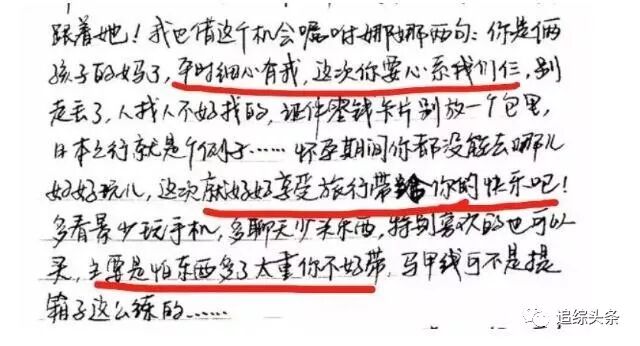 跟着她！我也借这个机会嘱咐娜娜两句：你是俩
孩子的妈了，平时细心有我，这次你要心系我们仨，别
走丢了，人找人不好找的，证件零钱卡片别放一个包里，
日本之行就是个例子……怀孕期间你都没能去哪儿
好好玩儿，这次就好好享受旅行带给你的快乐吧！
多看景少玩手机，多聊天少买东西，特别喜欢的也可以
买，主要是怕东西多了太重你不好带，马甲线可不是提
箱子这么练的……
追综头条